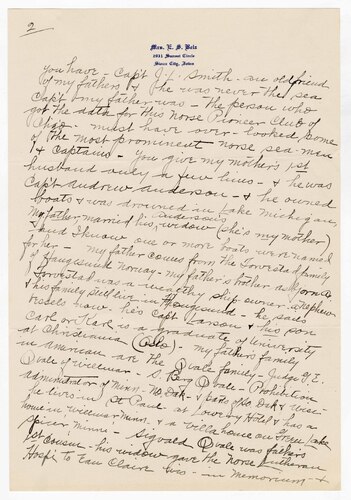 2
Mrs. E. S. Bois
2931 Sunset Circle
Sioux City, Iowa
you have - Capt J. L. Smith - an old friend
of my fathers & he was never the sea
Capt my father was - the person who
got the data for this Norse Pioneer Club of
Chgo - must have over-looked some
of the most prominent norse sea-men
& Captains - You give my mother's 1st
husband only a few lines - & he was
Capt Andrew Anderson - & he owned
boats & was drowned in Lake Michigan
My father married his widow (she's my mother)
Anderson's
and I know one or more boats were named
for her - my father comes from the Torvestad family
of Haugesund Norway - my father's brother
Torvestad was a wealthy ship owner - Nephew
& his family still live in Haugesund - he sails
vessels now he's Capt Larson & his son
Carl or Karl is a graduate of University
at Christiania (Oslo) My fathers family
in American are the Qvale family - Judge G. E.
Qvale of Willmar - Berg Qvale - Prohibition
administrator of Minn - No. Dak & parts of So. Dak & Wisc -
he lives in St Paul at Lowery Hotel & has a
house in Willmar Minn. & a villa home on Green Lake
Spicer Minn - Sigvald Qvale was fathers
1st Cousin - his widow gave the Norse Lutheran
Hosp to Eau Claire Wis - in Memorium - &